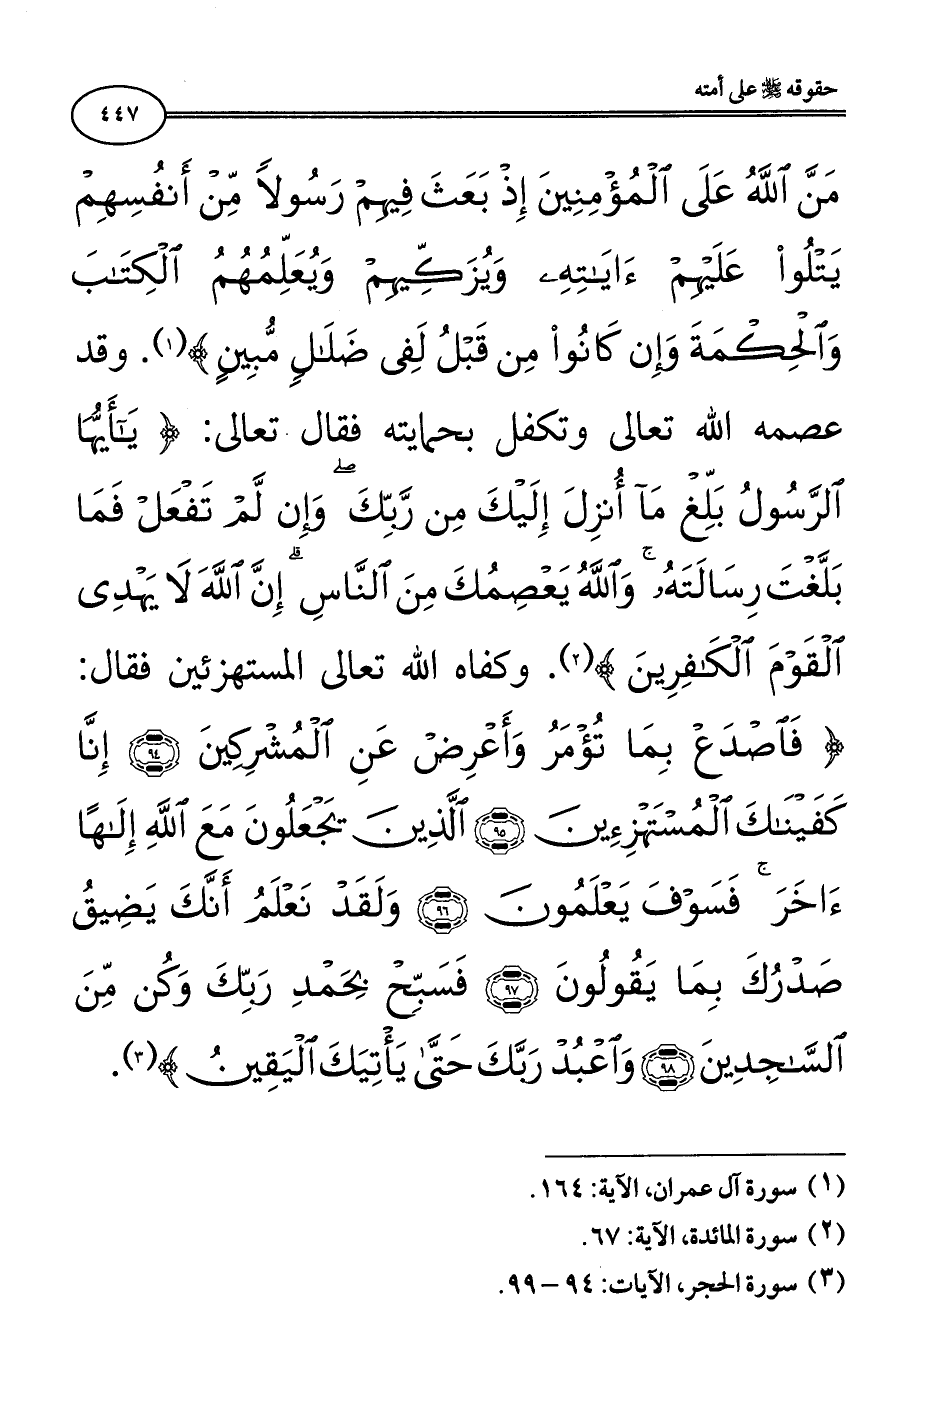 حقوقه ﷺ على أمته
٤٤٧
مَنَّ ٱللَّهُ عَلَى ٱلْمُؤْمِنِينَ إِذْ بَعَثَ فِيهِمْ رَسُولاً مِّنْ أَنفُسِهِمْ
يَتْلُوا۟ عَلَيْهِمْ ءَايَـٰتِهِۦ وَيُزَكِّيهِمْ وَيُعَلِّمُهُمُ ٱلْكِتَـٰبَ
وَٱلْحِكْمَةَ وَإِن كَانُوا۟ مِن قَبْلُ لَفِى ضَلَـٰلٍ مُّبِينٍ ﴾(١). وقد
عصمه الله تعالى وتكفل بحمايته فقال تعالى: ﴿ يَـٰٓأَيُّهَا
ٱلرَّسُولُ بَلِّغْ مَآ أُنزِلَ إِلَيْكَ مِن رَّبِّكَ ۖ وَإِن لَّمْ تَفْعَلْ فَمَا
بَلَّغْتَ رِسَالَتَهُۥ ۚ وَٱللَّهُ يَعْصِمُكَ مِنَ ٱلنَّاسِ ۗ إِنَّ ٱللَّهَ لَا يَهْدِى
ٱلْقَوْمَ ٱلْكَـٰفِرِينَ ﴾(٢). وكفاه الله تعالى المستهزئين فقال:
﴿ فَٱصْدَعْ بِمَا تُؤْمَرُ وَأَعْرِضْ عَنِ ٱلْمُشْرِكِينَ ٩٤ إِنَّا
كَفَيْنَـٰكَ ٱلْمُسْتَهْزِءِينَ ٩٥ ٱلَّذِينَ يَجْعَلُونَ مَعَ ٱللَّهِ إِلَـٰهًا
ءَاخَرَ ۚ فَسَوْفَ يَعْلَمُونَ ٩٦ وَلَقَدْ نَعْلَمُ أَنَّكَ يَضِيقُ
صَدْرُكَ بِمَا يَقُولُونَ ٩٧ فَسَبِّحْ بِحَمْدِ رَبِّكَ وَكُن مِّنَ
ٱلسَّـٰجِدِينَ ٩٨ وَٱعْبُدْ رَبَّكَ حَتَّىٰ يَأْتِيَكَ ٱلْيَقِينُ ﴾(٣).
(١) سورة آل عمران، الآية: ١٦٤.
(٢) سورة المائدة، الآية: ٦٧.
(٣) سورة الحجر، الآيات: ٩٤ – ٩٩.